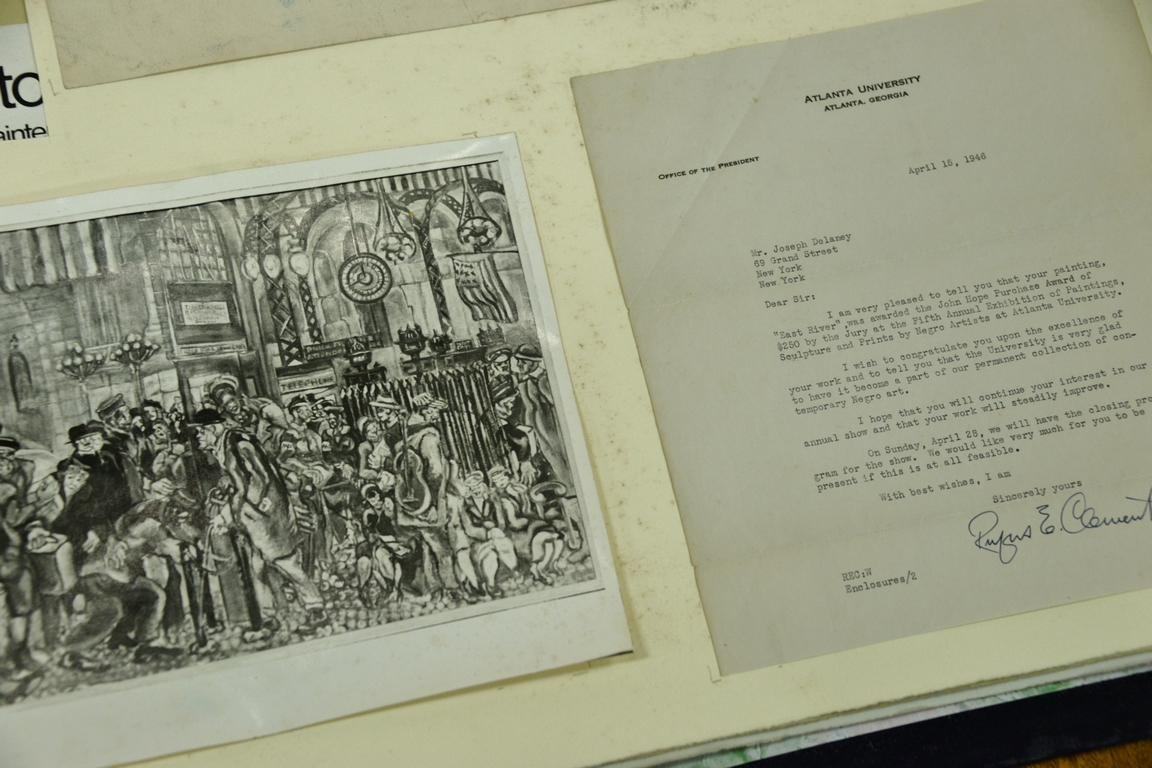 to
ainte
TELEPHONE
ATLANTA UNIVERSITY
ATLANTA, GEORGIA
OFFICE OF THE PRESIDENT
April 15, 1946
Mr. Joseph Delaney
69 Grand Street
New York
New York
Dear Sir:
I am very pleased to tell you that your painting,
"East River", was awarded the John Hope Purchase Award of
$250 by the Jury at the Fifth Annual Exhibition of Paintings,
Sculpture and Prints by Negro Artists at Atlanta University.
I wish to congratulate you upon the excellence of
your work and to tell you that the University is very glad
to have it become a part of our permanent collection of con-
temporary Negro art.
I hope that you will continue your interest in our
annual show and that your work will steadily improve.
On Sunday, April 28, we will have the closing pro
gram for the show. We would like very much for you to be
present if this is at all feasible.
With best wishes, I am
Sincerely yours
Rufus E. Clement
REC:W
Enclosures/2